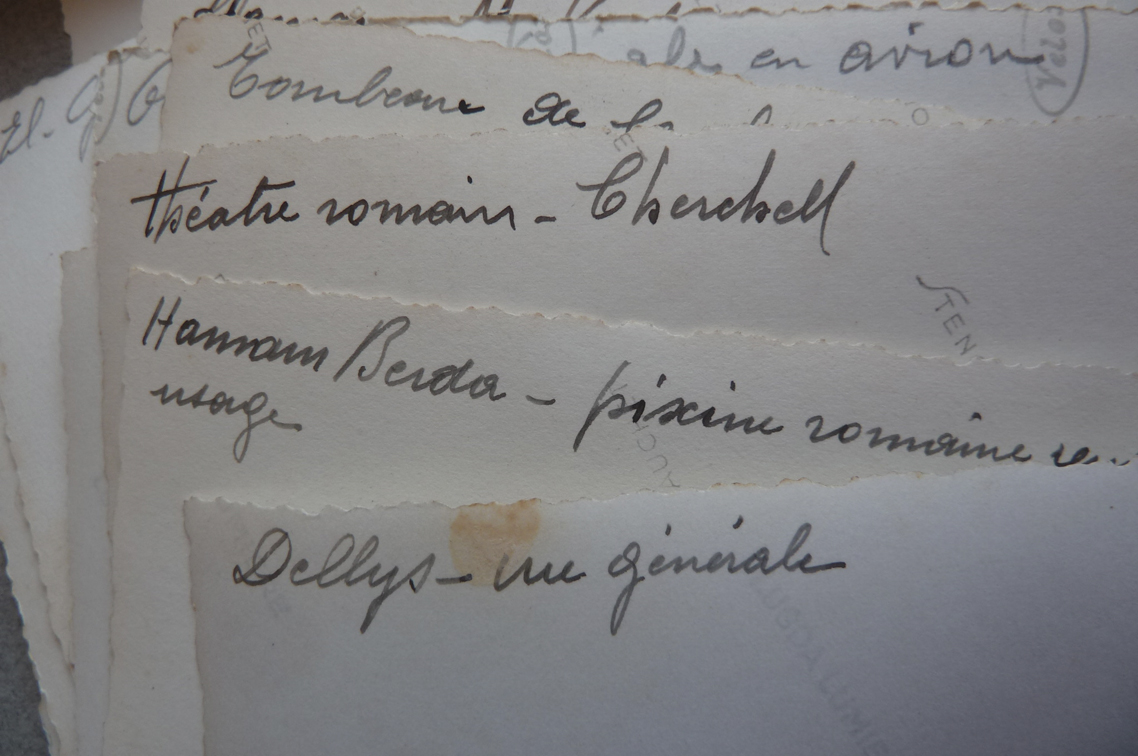 en avion
Tombeau de la
théatre romain - Cherchell
Hamam Berda - pixine romaine
usage
Dellys - vue générale
STEN
LUMIE